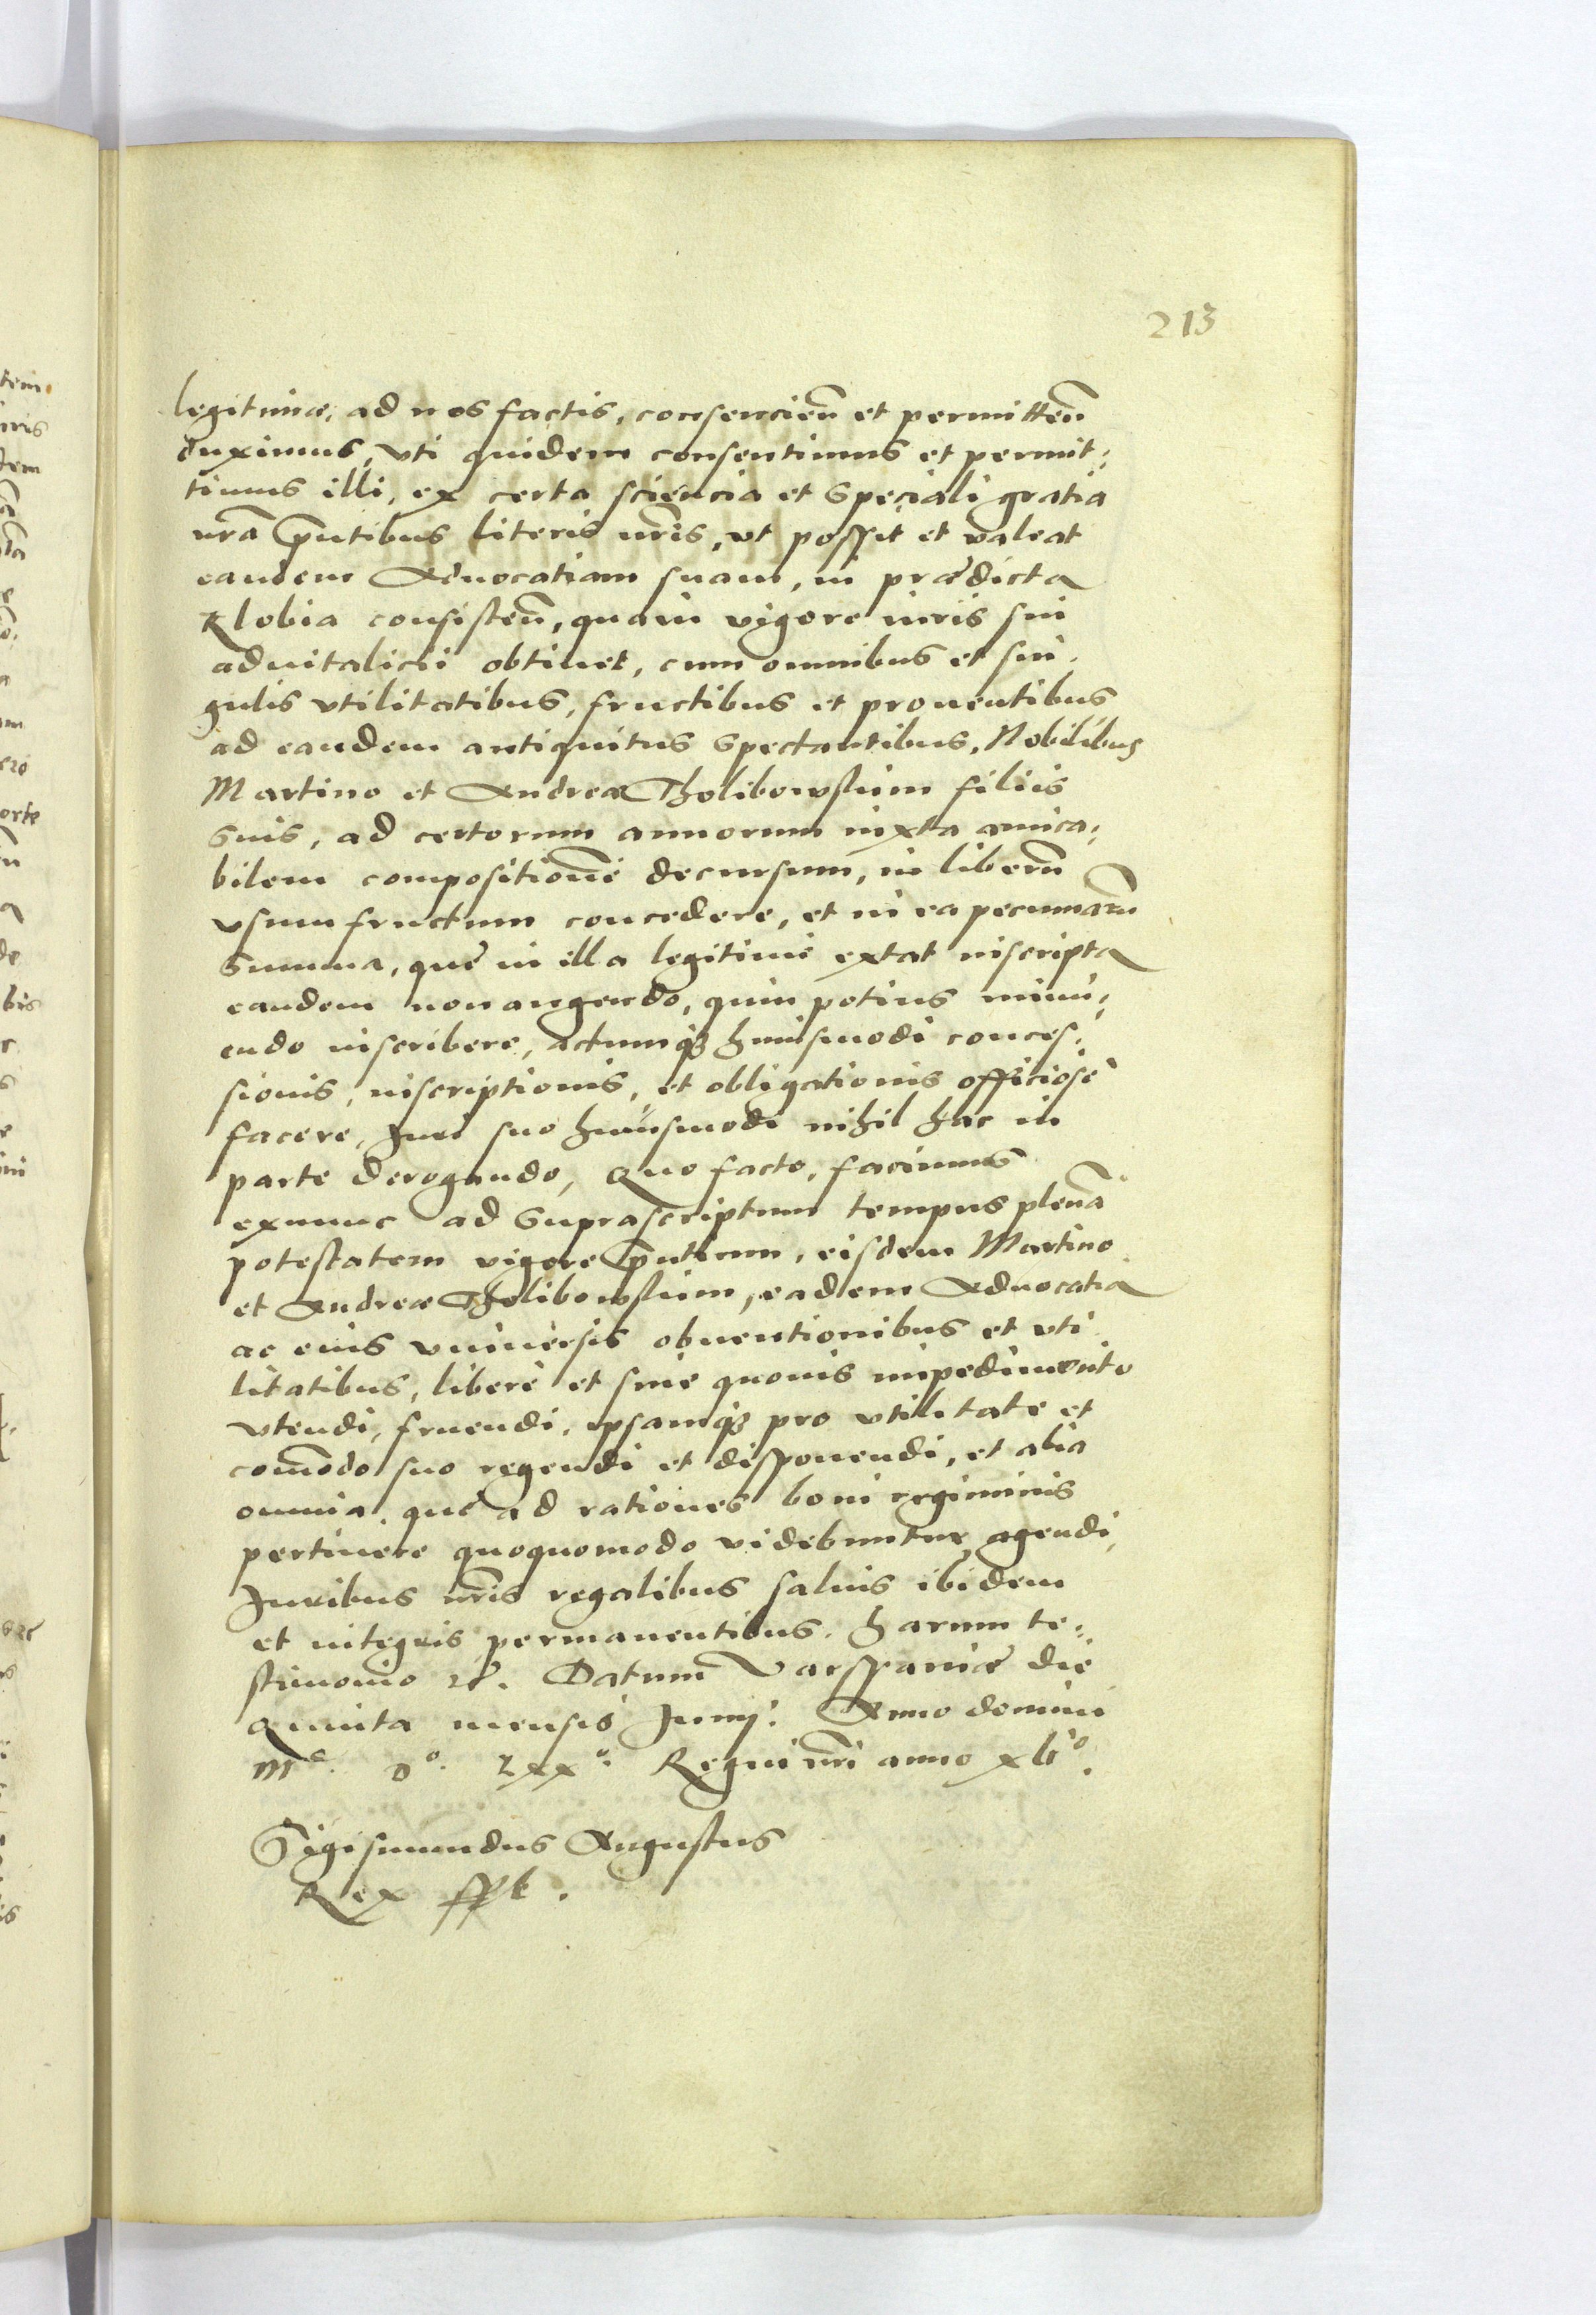 213
legitimæ, ad nos factis, consencien̄ et permitten̄
duximus, vti quidem consentimus et permit:
timus illi, ex certa sciencia et speciali gratia
nr̄a p̄ntibus literis nr̄is, vt possit et valeat
eandem Aduocatiam suam, in prædicta
Klobia consisten̄, quam vigore iuris sui
aduitalicii obtinet, cum omnibus et sin,
gulis vtilitatibus, fructibus et prouentibus
ad eandem antiquitus spectantibus, Nobilibus
Martino et Andreæ Tholibowskim filiis
suis, ad certorum annorum iuxta amica,
bilem compositionē decursum, in liberū
vsumfructum concedere, et in ea pecuniarū
summa, quæ in illa legitime extat inscripta
eandem non augendo, quin potius minu,
endo inscribere, actumq3 huiusmodi conces,
sionis, inscriptionis, et obligationis officiose
facere, Juri suo huiusmodi nihil hac in
parte derogando, Quo facto, facimus
exnunc ad suprascriptum tempus plenā
potestatem vigore p̄ntium, eisdem Martino
et Andreæ Tholibowskim, eadem Aduocatia
ac eius vniuersis obuentionibus et vti
litatibus, libere et sine quouis impedimento
vtendi, fruendi, ipsamq3 pro vtilitate et
com̄odo suo regendi et disponendi, et alia
omnia, quæ ad rationes boni regiminis
pertinere quoquomodo videbuntur agendi,
Juribus nr̄is regalibus saluis ibidem
et integris permanentibus. Harum te:
stimonio &c. Datum Varssauiæ die
Quinta mensis Junij. Anno domini
Mo. Do. Lxxo. Regni nr̄i anno xlio.
Sigismundus Augustus
Rex sspt.